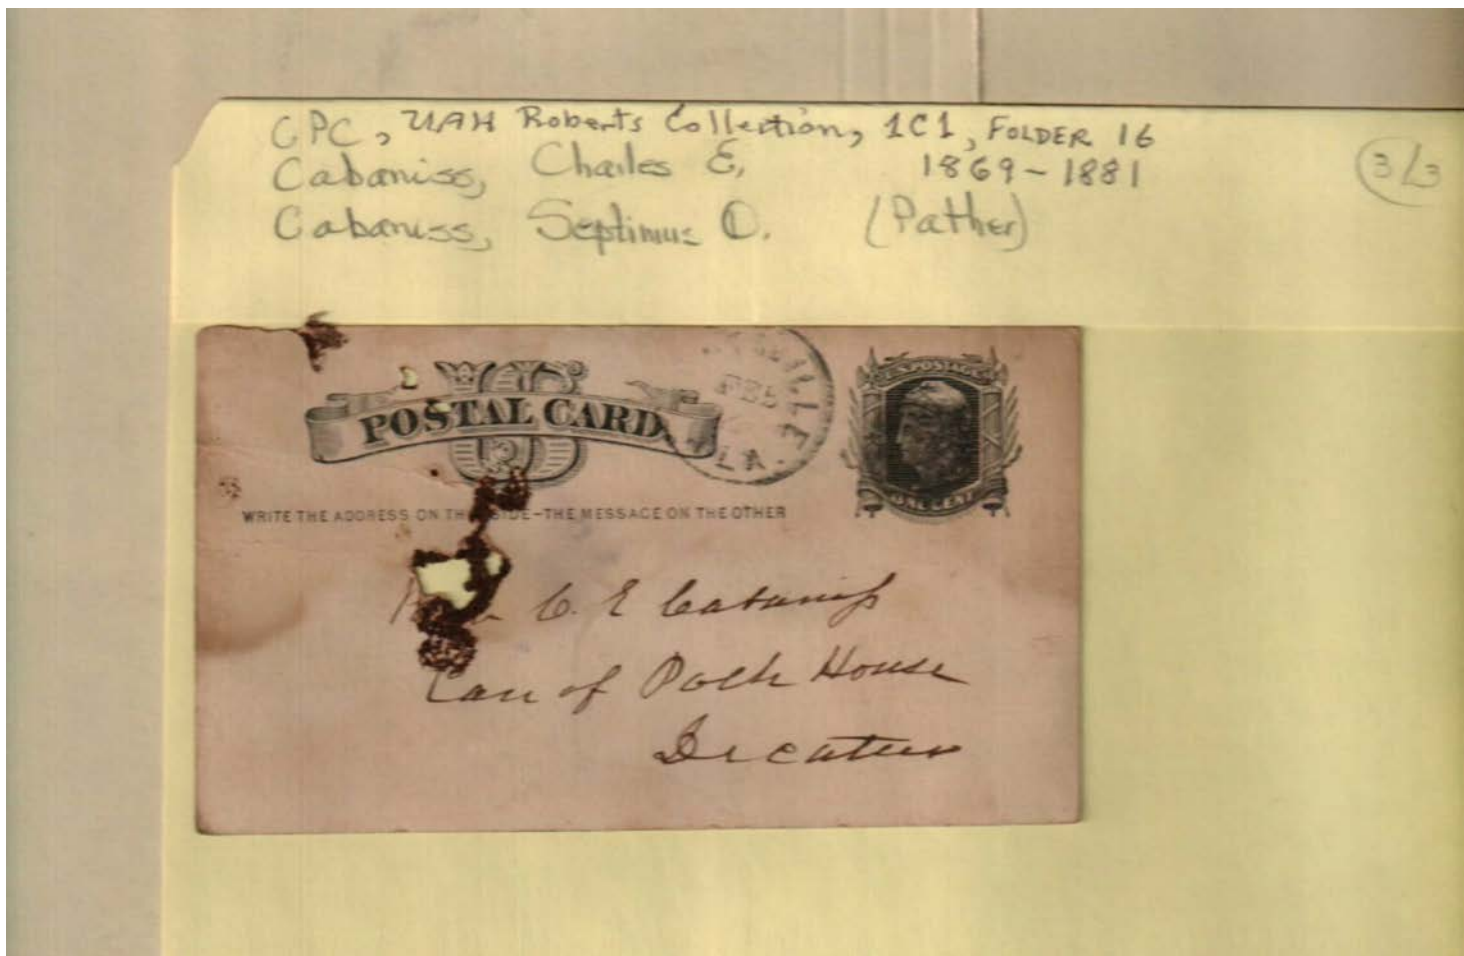 CPC, UAH Roberts Collection, 1C1, FOLDER 16
Cabaniss, Charles E. 1869-1881
3/3
Cabaniss, Septimus D. (Father)
U.S. POSTAGE
POSTAL CARD
LA.
ONE CENT
WRITE THE ADDRESS ON SIDE-THE MESSAGE ON THE OTHER
C. E Cabaniss
Care of Polk House
Decatur